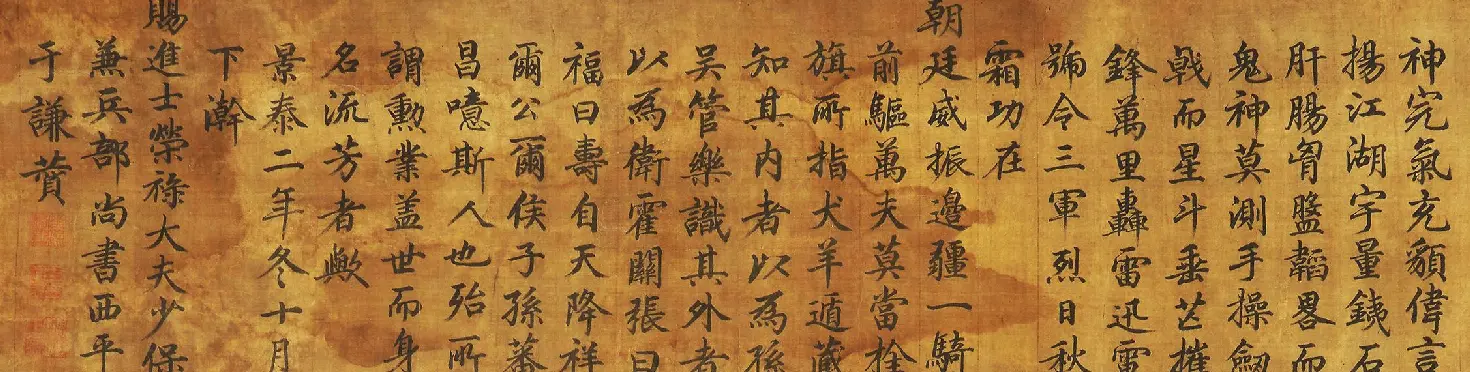 神完氣充額偉言
揚江湖宇量鉄石
肝腸胷盤韜畧而
鬼神莫測手操劒
戟而星斗垂芒摧
鋒萬里轟雷迅雷
號令三軍烈日秋
霜功在
朝廷威振邊疆一騎
前驅萬夫莫當栓
旗所指犬羊遁藏
知其内者以為孫
吴管樂識其外者
以為衛霍關張曰
福曰壽自天降祥
爾公爾侯子孫蕃
昌噫斯人也殆所
謂勳業盖世而身
名流芳者歟
景泰二年冬十月
下澣
賜進士榮祿大夫少保
兼兵部尚書西平
于謙贊